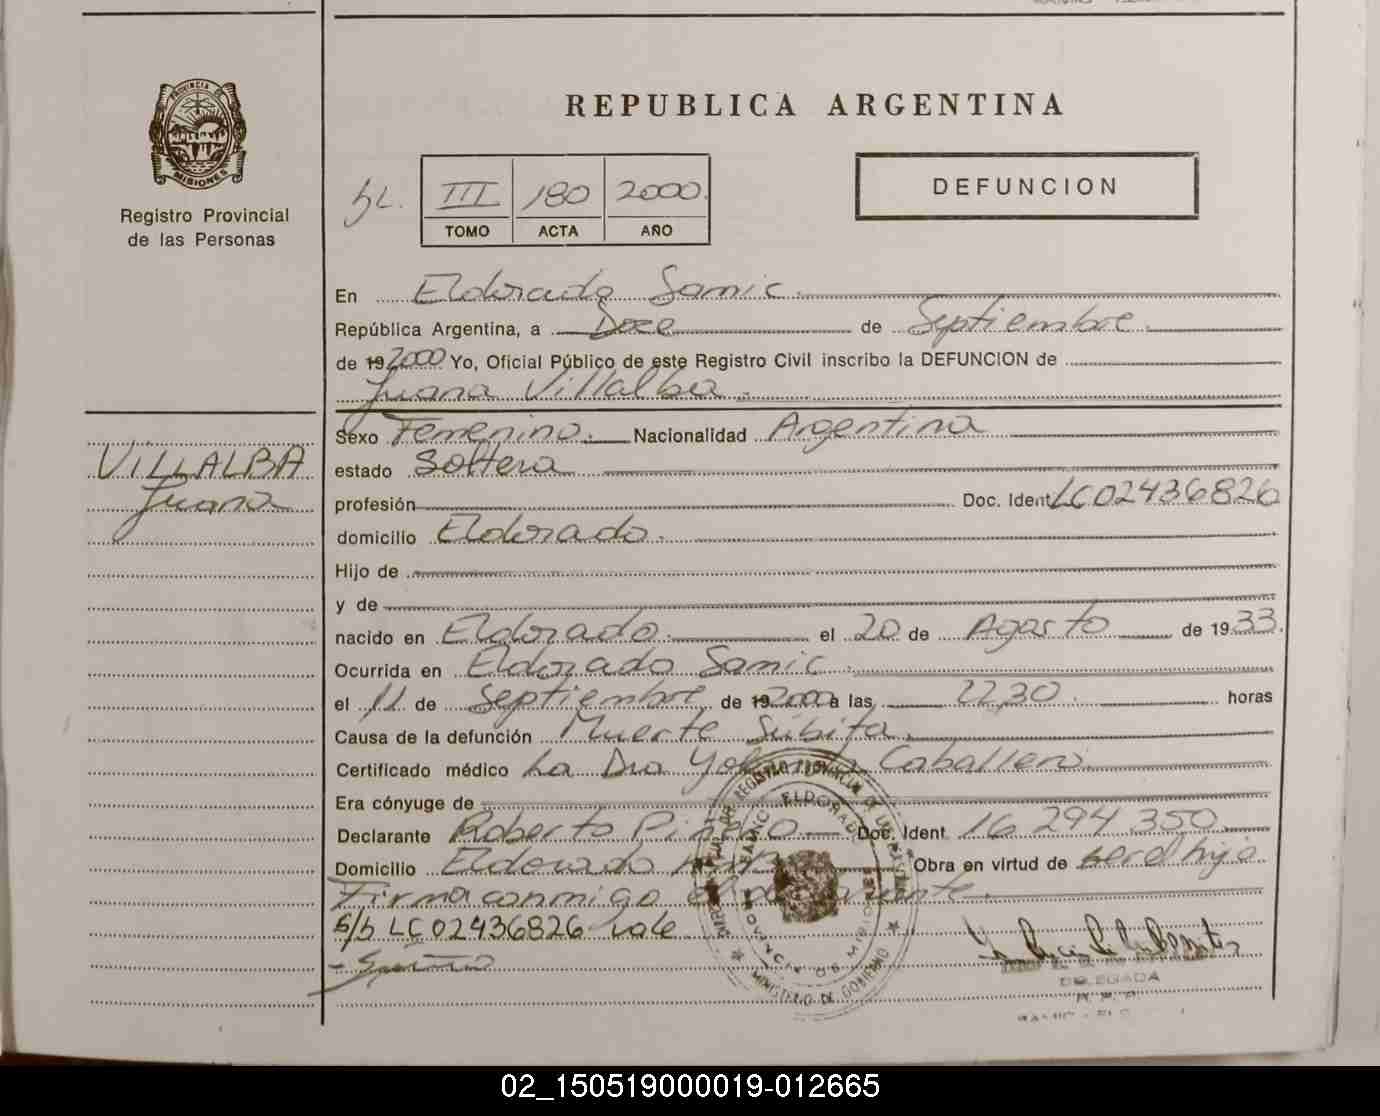 PROVINCIA DE
MISIONES
Registro Provincial
de las Personas
REPUBLICA ARGENTINA
III 180 2000
TOMO ACTA AÑO
DEFUNCION
En Eldorado Samic
República Argentina, a Doce de Septiembre
de 19 2000 Yo, Oficial Público de este Registro Civil inscribo la DEFUNCION de
Juana Villalba.
VILLALBA
Juana
Sexo Femenino. Nacionalidad Argentina
estado Soltera
profesión Doc. Ident LC02436826
domicilio Eldorado.
Hijo de
y de
nacido en Eldorado. el 20 de Agosto de 1933.
Ocurrida en Eldorado Samic
el 11 de Septiembre de 19 2000 a las 22,30 horas
Causa de la defunción Muerte Súbita.
Certificado médico La Dra Yolanda Caballero
Era cónyuge de
Declarante Roberto Doc. Ident 16 294 350
Domicilio Eldorado Obra en virtud de ser el hijo
Firma conmigo el declarante.
s/b LC02436826 vale
DELEGADA
MINISTERIO DE GOBIERNO
ELDORADO
02_150519000019-012665